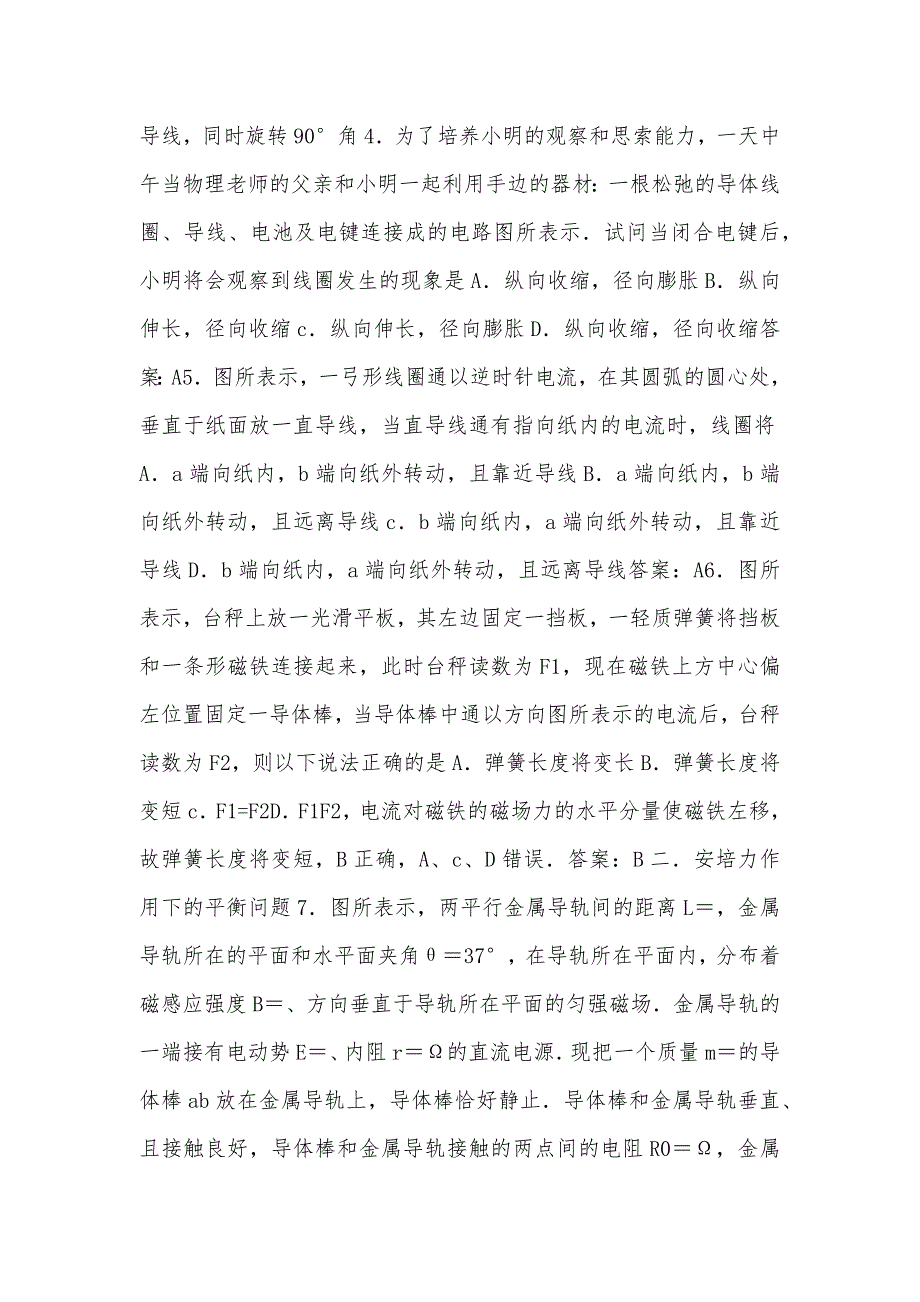 导线，同时旋转90°角4．为了培养小明的观察和思索能力，一天中
午当物理老师的父亲和小明一起利用手边的器材：一根松弛的导体线
圈、导线、电池及电键连接成的电路图所表示．试问当闭合电键后，
小明将会观察到线圈发生的现象是A．纵向收缩，径向膨胀B．纵向
伸长，径向收缩c．纵向伸长，径向膨胀D．纵向收缩，径向收缩答
案：A5．图所表示，一弓形线圈通以逆时针电流，在其圆弧的圆心处，
垂直于纸面放一直导线，当直导线通有指向纸内的电流时，线圈将
A．a端向纸内，b端向纸外转动，且靠近导线B．a端向纸内，b端
向纸外转动，且远离导线c．b端向纸内，a端向纸外转动，且靠近
导线D．b端向纸内，a端向纸外转动，且远离导线答案：A6．图所
表示，台秤上放一光滑平板，其左边固定一挡板，一轻质弹簧将挡板
和一条形磁铁连接起来，此时台秤读数为F1，现在磁铁上方中心偏
左位置固定一导体棒，当导体棒中通以方向图所表示的电流后，台秤
读数为F2，则以下说法正确的是A．弹簧长度将变长B．弹簧长度将
变短c．F1=F2D．F1F2，电流对磁铁的磁场力的水平分量使磁铁左移，
故弹簧长度将变短，B正确，A、c、D错误．答案：B二．安培力作
用下的平衡问题7．图所表示，两平行金属导轨间的距离L＝，金属
导轨所在的平面和水平面夹角θ＝37°，在导轨所在平面内，分布着
磁感应强度B＝、方向垂直于导轨所在平面的匀强磁场．金属导轨的
一端接有电动势E＝、内阻r＝Ω的直流电源．现把一个质量m＝的导
体棒ab放在金属导轨上，导体棒恰好静止．导体棒和金属导轨垂直、
且接触良好，导体棒和金属导轨接触的两点间的电阻R0＝Ω，金属